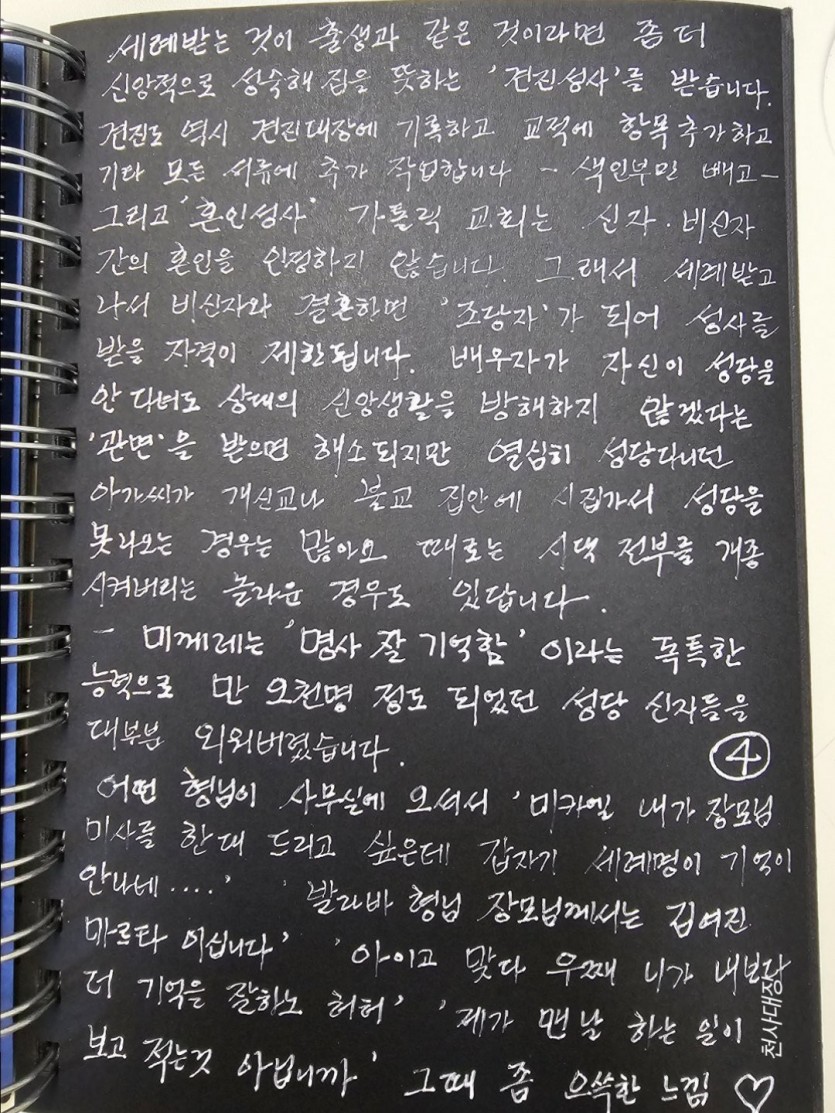 세례받는 것이 출생과 같은 것이라면 좀더
신앙적으로 성숙해 짐을 뜻하는 '견진성사'를 받습니다.
견진도 역시 견진대장에 기록하고 교적에 항목추가하고
기타 모든 서류에 추가 작업합니다 - 색인부만 빼고-
그리고 '혼인성사' 가톨릭 교회는 신자·비신자
간의 혼인을 인정하지 않습니다. 그래서 세례받고
나서 비신자와 결혼하면 '조당자'가 되어 성사를
받을 자격이 제한됩니다. 배우자가 자신이 성당을
안 다녀도 상대의 신앙생활을 방해하지 않겠다는
'관면'을 받으면 해소되지만 열심히 성당다니던
아가씨가 개신교나 불교 집안에 시집가서 성당을
못나오는 경우는 많아요 때로는 시댁 전부를 개종
시켜버리는 놀라운 경우도 있답니다.
- 미께레는 '명사 잘 기억함' 이라는 독특한
능력으로 만 오천명 정도 되었던 성당 신자들을
대부분 외워버렸습니다.
④
어떤 형님이 사무실에 오셔서 '미카엘 내가 장모님
미사를 한대 드리고 싶은데 갑자기 세례명이 기억이
안나네....' '발라바 형님 장모님께서는 김여진
마르타 이십니다' '아이고 맞다 우째 니가 내보다
더 기억을 잘하노 허허' '제가 맨날 하는 일이
보고 적는것 아닙니까' 그때 좀 으쓱한 느낌 ♡
천사대장